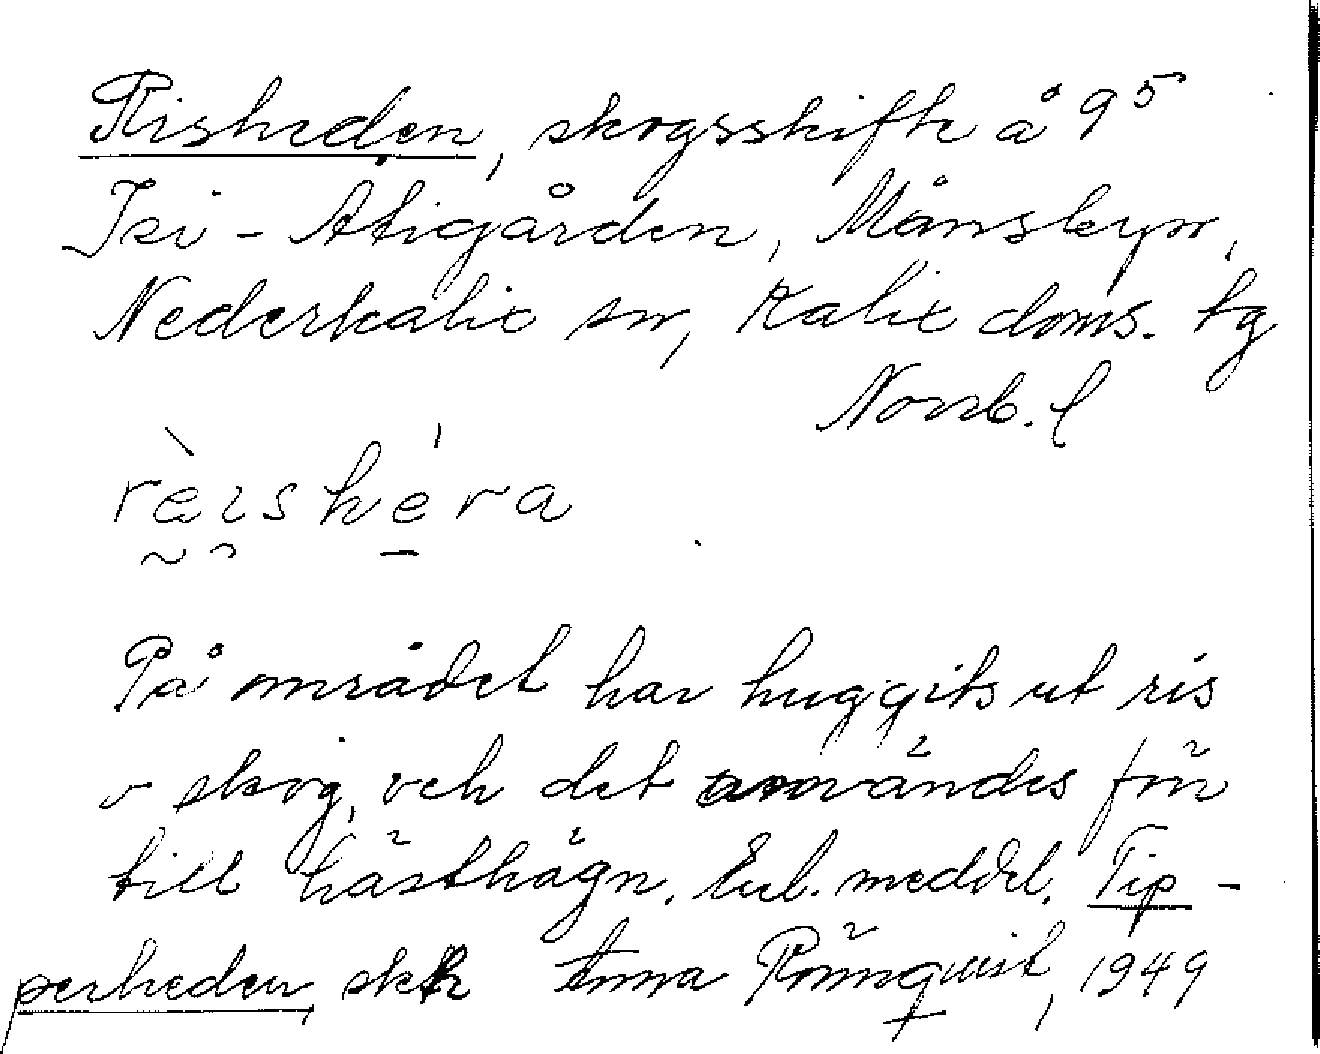 Risheden, skogsskifte å 9⁵
Isi-Atigården, Månsbyn,
Nederkalix sn, Kalix doms. tg
Norrb. l
rèishéra
På området har huggits ut ris
o skog, och det användes förr
till hästhägn. Enl. meddel. Tip-
perheden, skr Anna Rönnquist, 1949